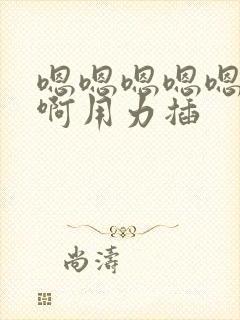 嗯嗯嗯嗯嗯
啊用力插
尚濤